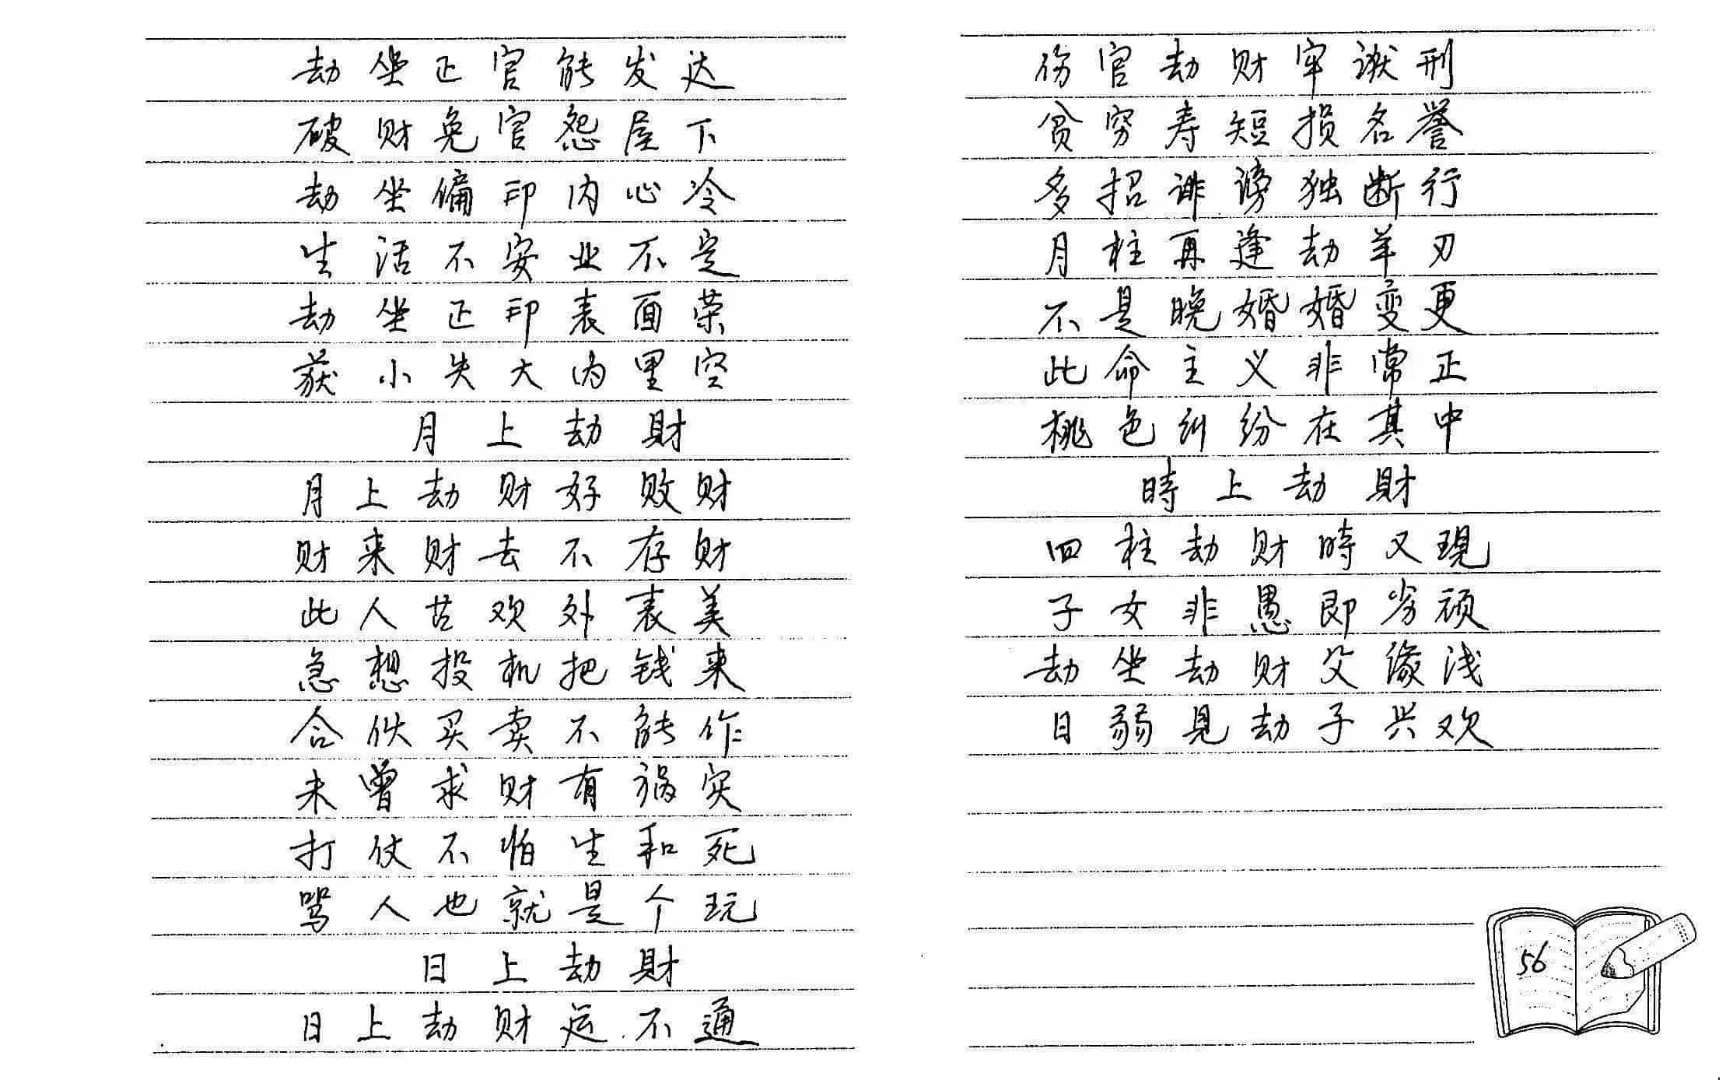 劫坐正官能发达
破财免官怨屋下
劫坐偏印内心冷
生活不安业不定
劫坐正印表面荣
获小失大内里空
月上劫財
月上劫财好败财
财来财去不存财
此人苦欢外表美
急想投机把钱来
合伙买卖不能作
未曾求财有祸灾
打仗不怕生和死
骂人也就是个玩
日上劫財
日上劫财运不通
伤官劫财牢狱刑
贫穷寿短损名誉
多招诽谤独断行
月柱再逢劫羊刃
不是晚婚婚变更
此命主义非常正
桃色纠纷在其中
時上劫財
四柱劫财時又現
子女非愚即劣顽
劫坐劫财父缘浅
日弱見劫子兴欢
56